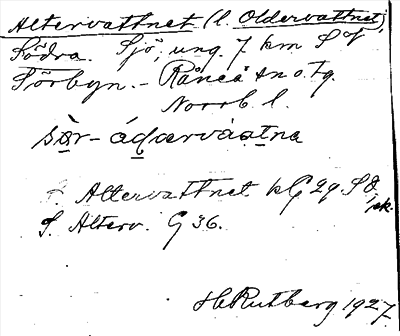 Altervattnet (l. Oldervattnet),
Södra. Sjö, ung. 7 km S of
Sörbyn. – Råneå sn o. tg.
Norrb. l.
sὰr-áḍærvàatnə
Altervattnet kG 29 S
S. Alterv. G 36.
H Rutberg 1927.